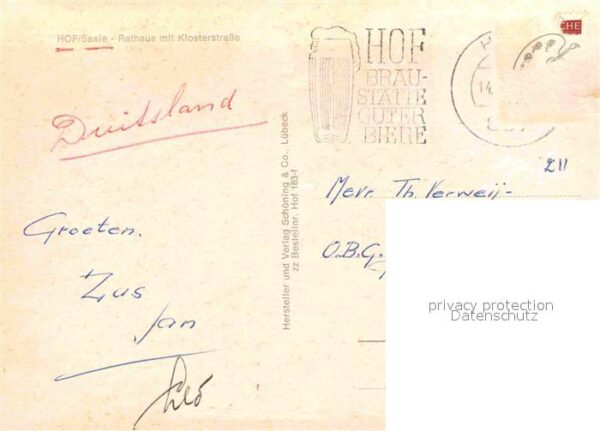 HOF/Saale - Rathaus mit Klosterstraße
HOF
BRAU-
STÄTTE
GUTER
BIERE
14.
Duitsland
Hersteller und Verlag Schöning & Co., Lübeck
zz Bestellnr. Hof 183-f
211
Mevr. Th. Verweij-
O.B.G.
Groeten.
Zus
Jan
privacy protection
Datenschutz